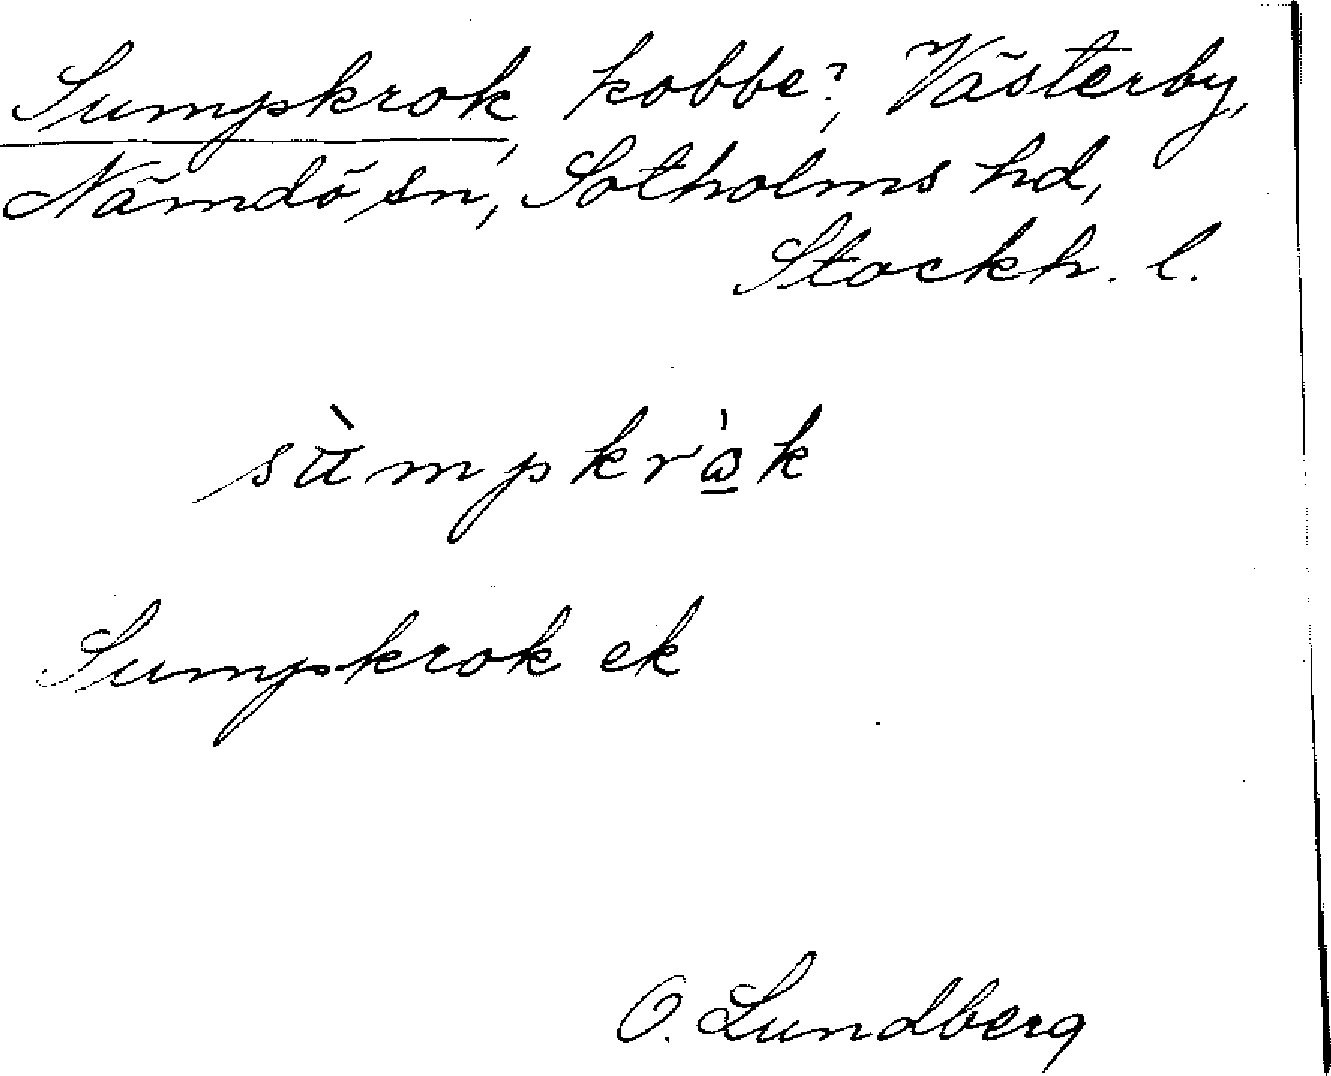 Sumpkrok, kobbe?, Västerby,
Nämdö sn, Sotholms hd,
Stockh. l.
sùmpkrὼ̲k
Sumpkrok ek
O. Lundberg